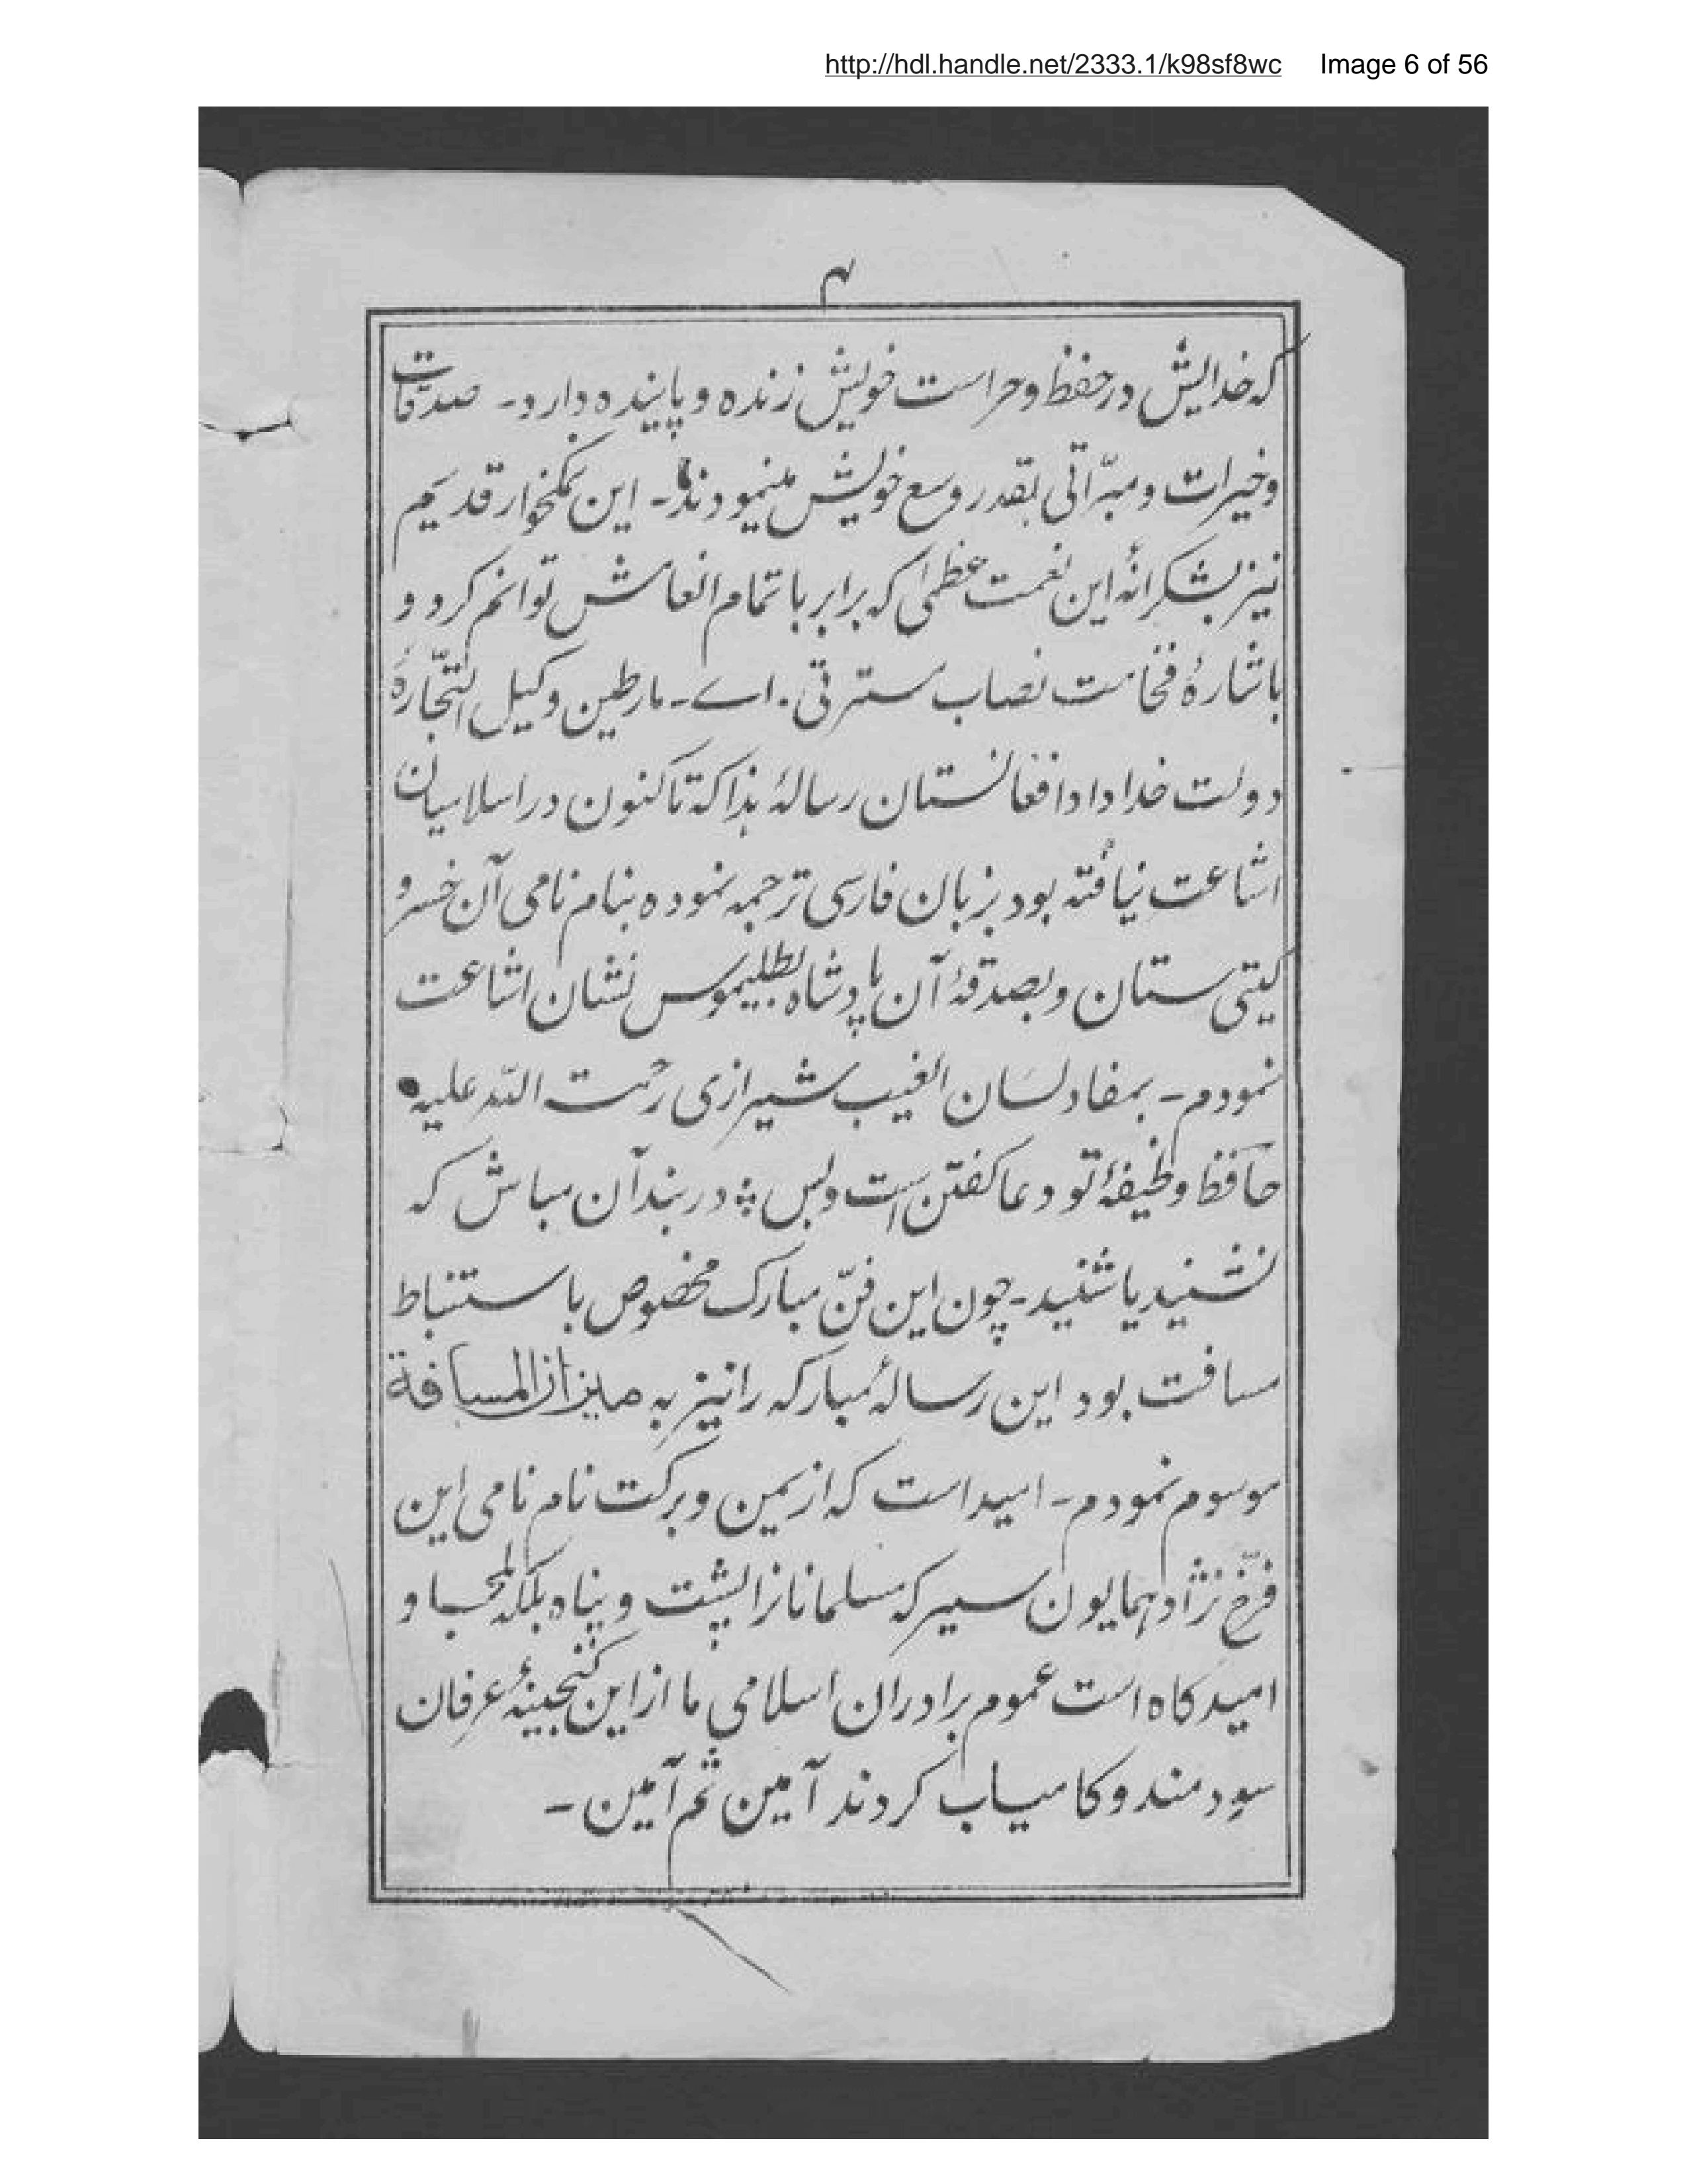 http://hdl.handle.net/2333.1/k98sf8wc Image 6 of 56
۴
که خدایش در حفظ و حراست خویش زنده و پاینده دارد۔ صدقات
و خیرات و مبرّاتی بقدر وسع خویش مینمودند۔ این نمکخوار قدیم
نیز بشکرانهٔ این نعمت عظمیٰ که برابر با تمام انعامش توانم کرد و
باشارهٔ فخامت نصاب مستر تی۔ اے۔ مارطین وکیل التّجارهٔ
دولت خداداد افغانستان رسالهٔ هذا که تاکنون در اسلامیان
اشاعت نیافته بود بزبان فارسی ترجمه نموده بنام نامی آن خسرو
کیتی ستان و بصدقهٔ آن پادشاه بطلیموس نشان اشاعت
نمودم۔ بمفاد لسان الغیب شیرازی رحمت اللّه علیه
حافظ وظیفهٔ تو دعا کفتن است و بس ؞ در بند آن مباش که
نشنید یا شنید۔ چون این فنّ مبارک مخصوص با ستنباط
مسافت بود این رسالهٔ مبارکه را نیز به میزان المسافة
موسوم نمودم۔ امید است که از یمن و برکت نام نامی این
فرّخ نژاد همایون سیر که مسلمانانرا پشت و پناه بلکه ملجا و
امید کاه است عموم برادران اسلامی ما از این کنجینهٔ عرفان
سودمند و کامیاب کردند آمین ثم آمین۔